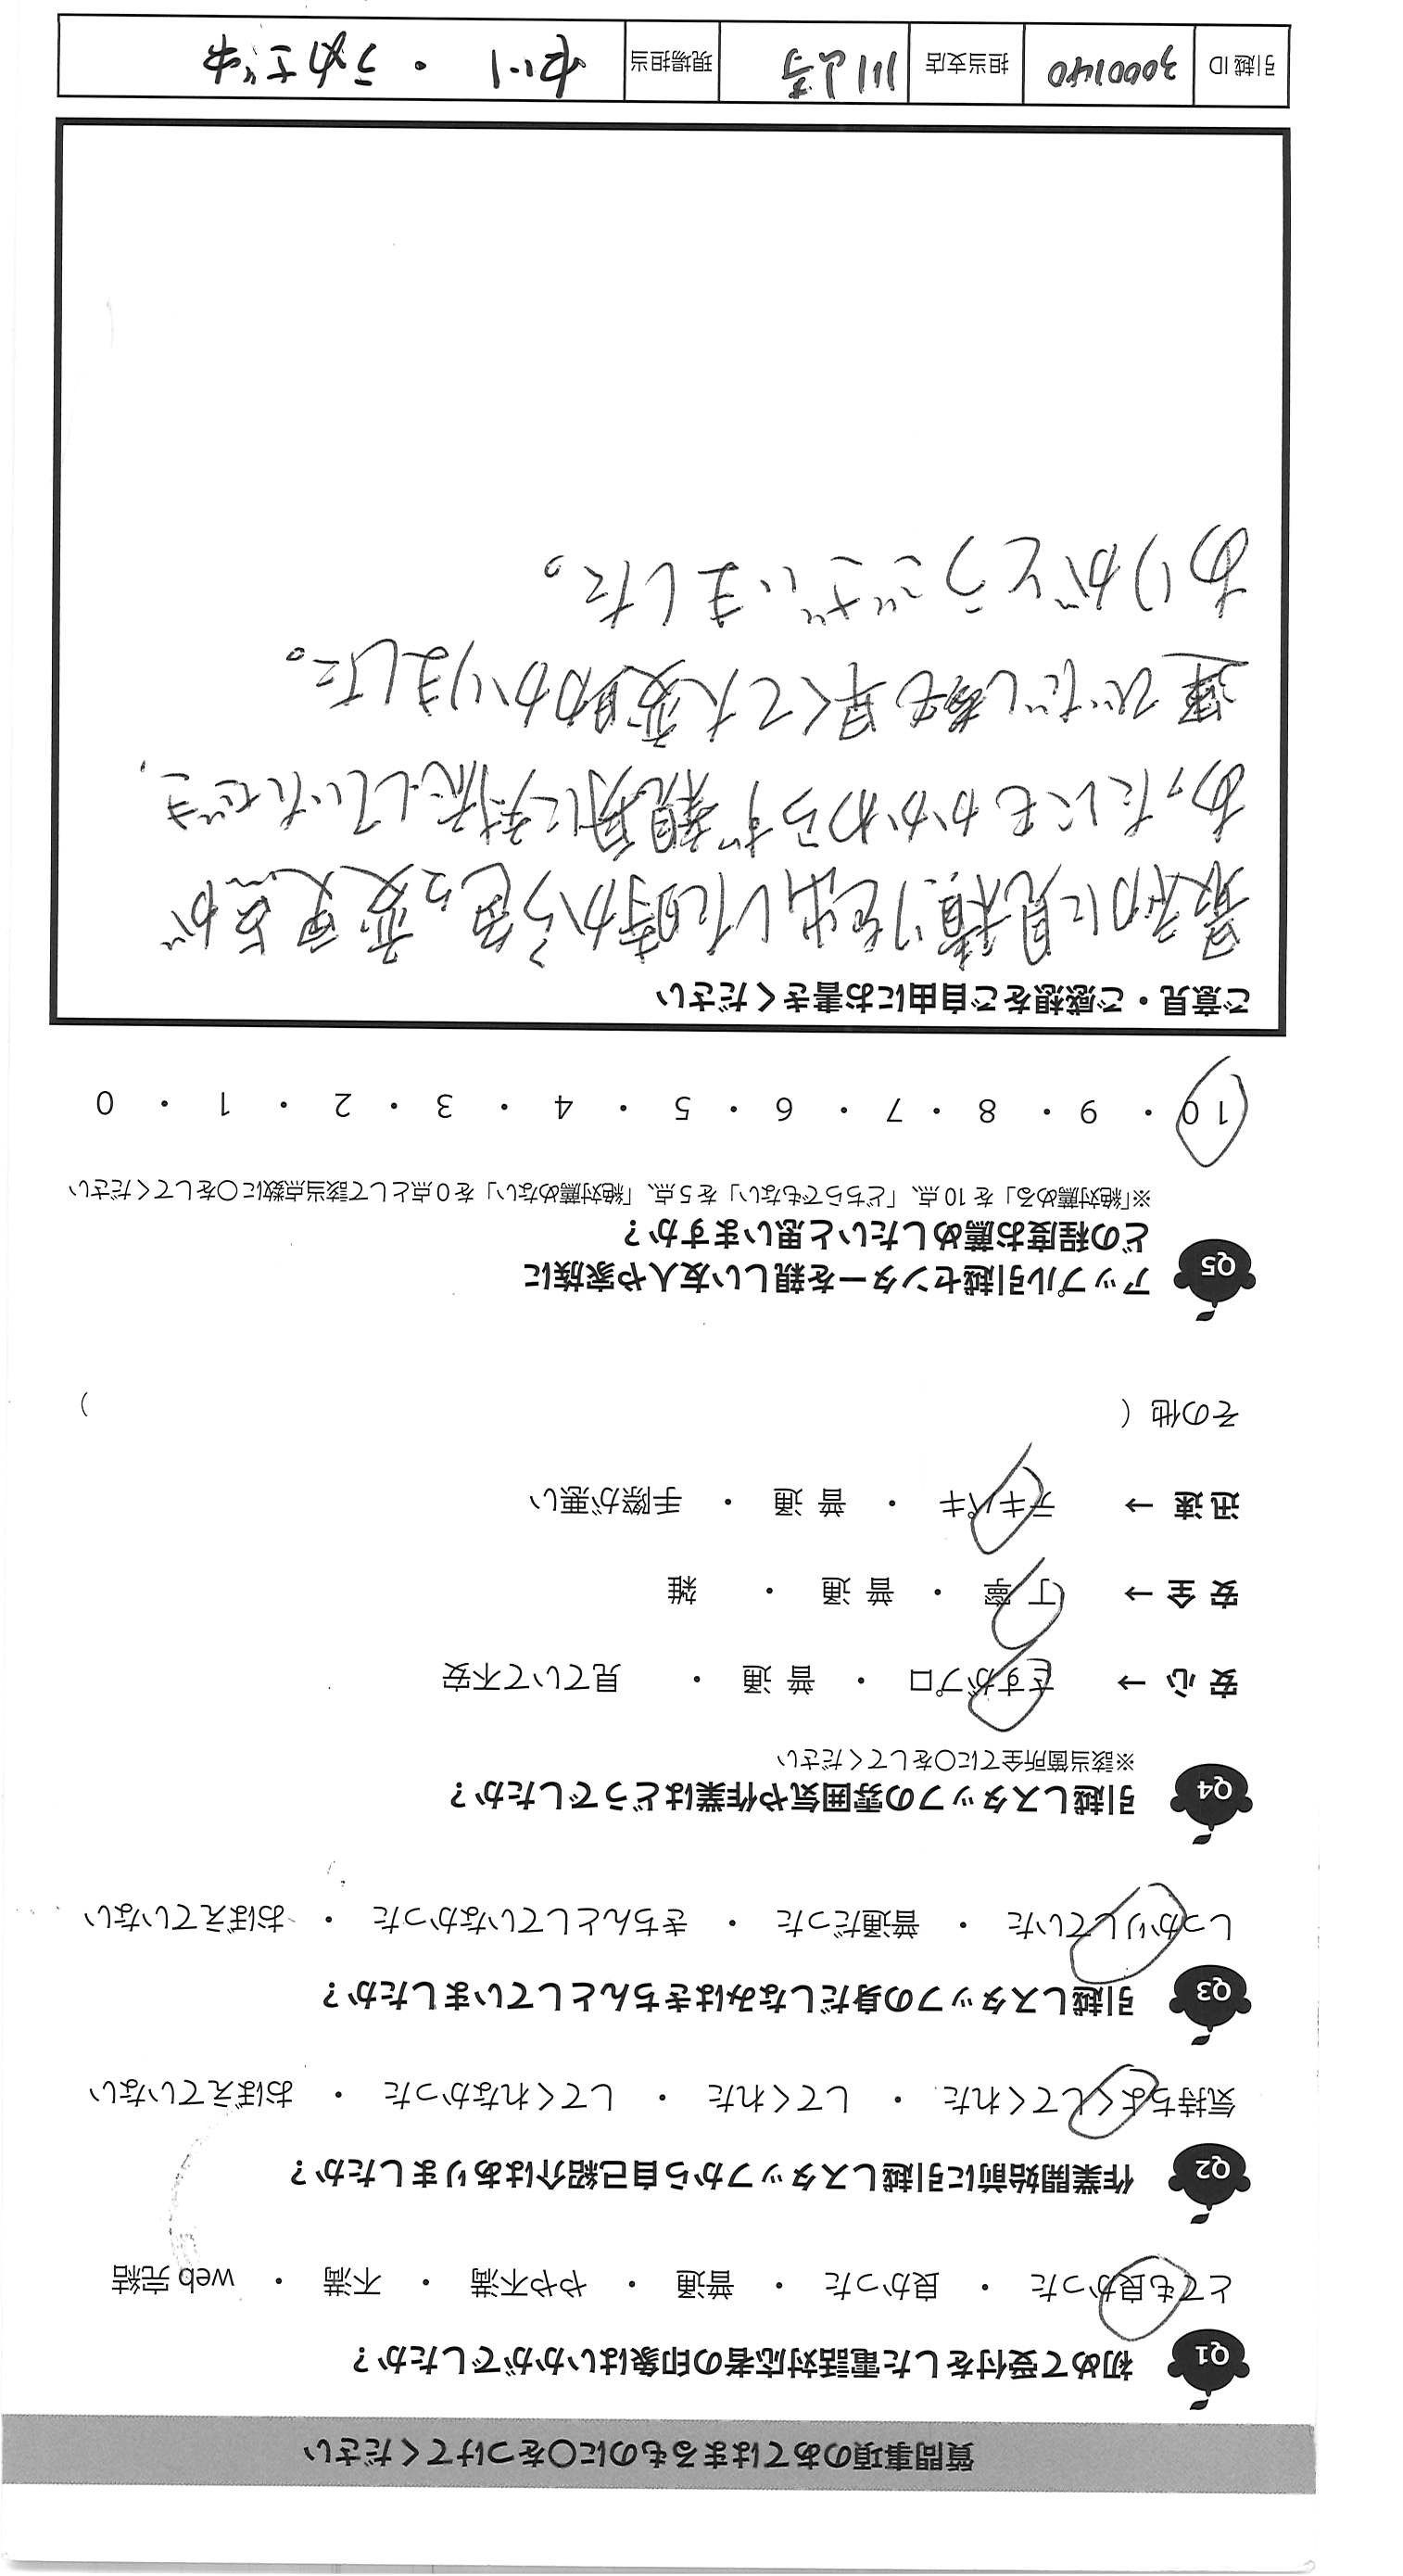 質問事項のあてはまるものに〇をつけてください
Q1 初めて受付をした電話対応者の印象はいかがでしたか？
とても良かった ・ 良かった ・ 普通 ・ やや不満 ・ 不満 ・ web 完結
Q2 作業開始前に引越しスタッフから自己紹介はありましたか？
気持ちよくしてくれた ・ してくれた ・ してくれなかった ・ おぼえていない
Q3 引越しスタッフの身だしなみはきちんとしていましたか？
しっかりしていた ・ 普通だった ・ きちんとしていなかった ・ おぼえていない
Q4 引越しスタッフの雰囲気や作業はどうでしたか？
※該当箇所全てに〇をしてください
安心 → さすがプロ ・ 普通 ・ 見ていて不安
安全 → 丁寧 ・ 普通 ・ 雑
迅速 → テキパキ ・ 普通 ・ 手際が悪い
その他（ ）
Q5 アップル引越センターを親しい友人や家族に
どの程度お薦めしたいと思いますか？
※「絶対薦める」を 10 点、「どちらでもない」を 5 点、「絶対薦めない」を 0 点として該当点数に〇をしてください
10 ・ 9 ・ 8 ・ 7 ・ 6 ・ 5 ・ 4 ・ 3 ・ 2 ・ 1 ・ 0
ご意見・ご感想をご自由にお書きください
最初に見積りを出した時から色々変更点が
あったにもかかわらず親身に対応していただき、
運びだしも早くて大変助かりました。
ありがとうございました。
引越 ID 3000140 担当支店 現場担当